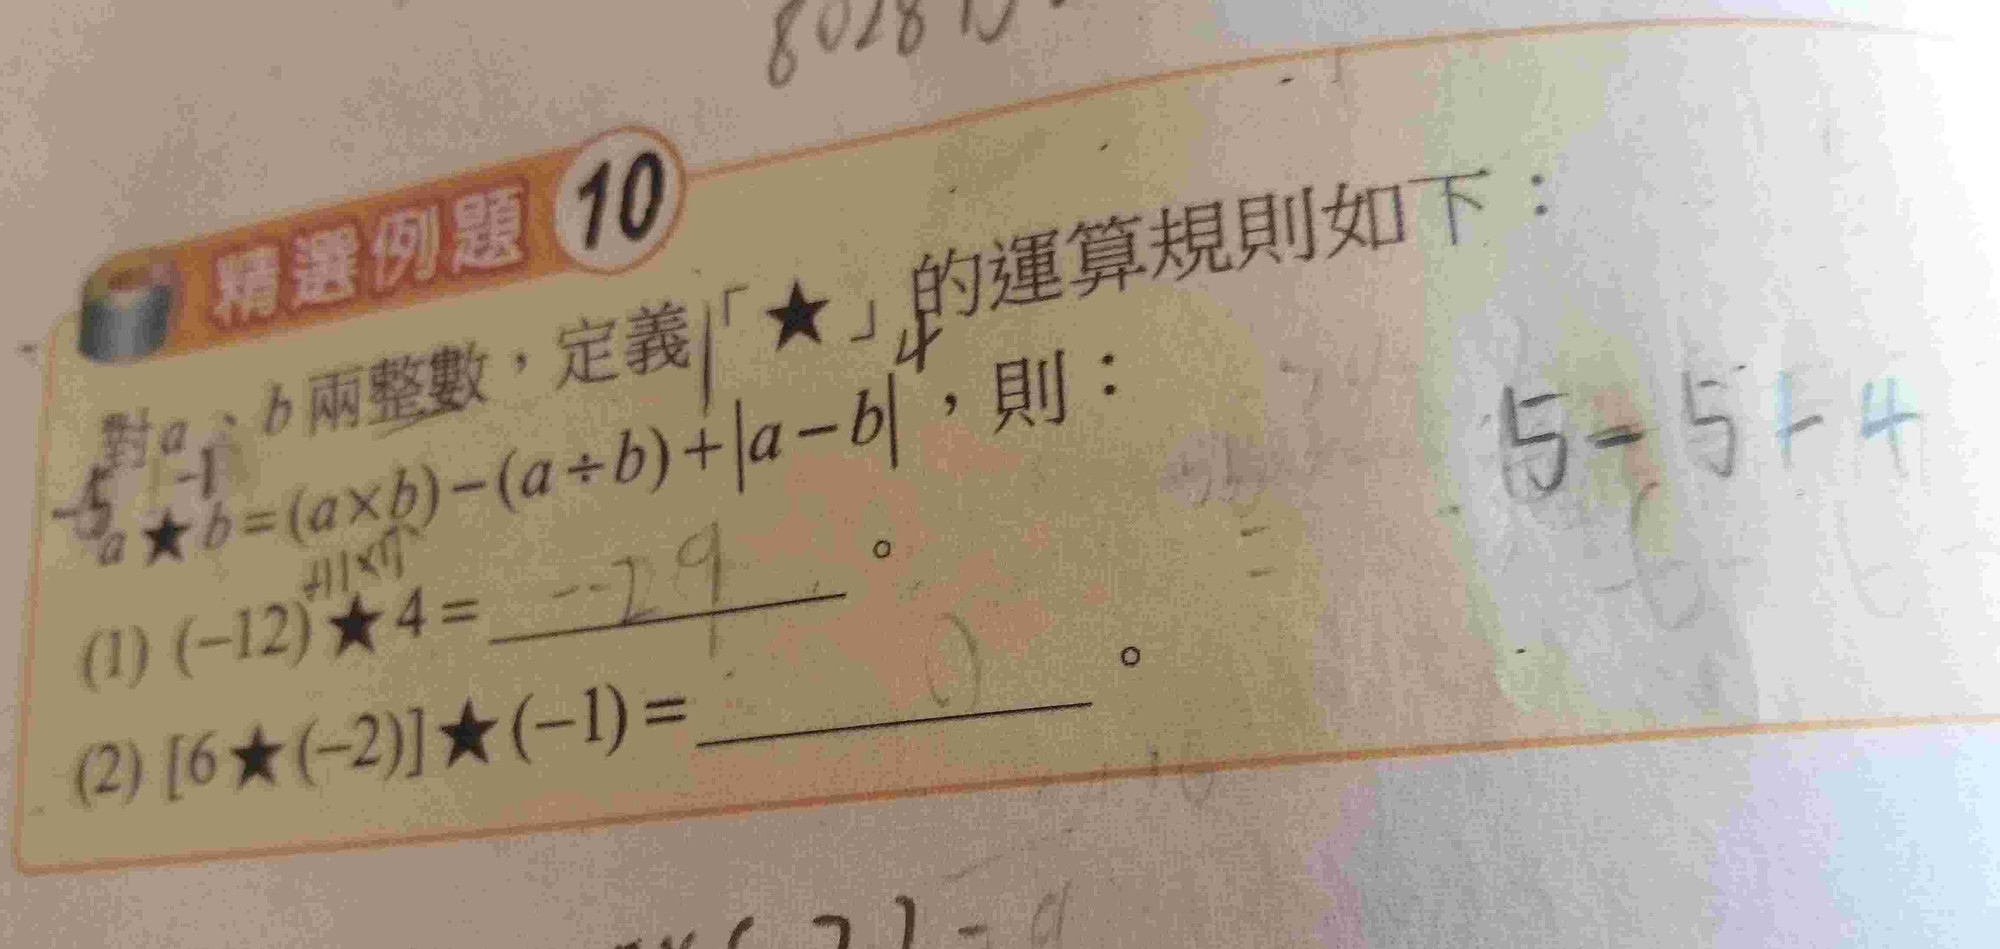 精選例題 10
對a、b兩整數，定義「★」的運算規則如下：
a★b=(a×b)−(a÷b)+|a−b|，則：
4
-5 -1
5-5+4
(1) (−12)★4= -29 。
(2) [6★(−2)]★(−1)= 0 。